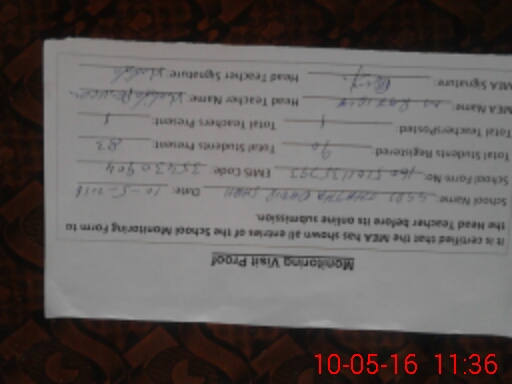 Monitoring Visit Proof
It is certified that the MEA has shown all entries of the School Monitoring Form to
the Head Teacher before its online submission.
School Name: Date: 10-5-2016
School Form No: EMIS Code: 35430904
Total Students Registered: 90 Total Students Present: 83
Total TeachersPosted: 1 Total Teachers Present: 1
MEA Name: Head Teacher Name:
MEA Signature: Head Teacher Signature:
10-05-16 11:36